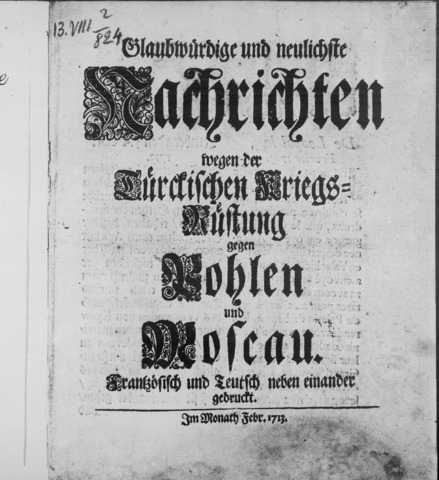 13.VIII 2/824
Glaubwürdige und neulichste
Nachrichten
wegen der
Türckischen Kriegs=
Rüstung
gegen
Pohlen
und
Moscau.
Frantzösisch und Teutsch neben einander
gedruckt.
Im Monath Febr. 1713.